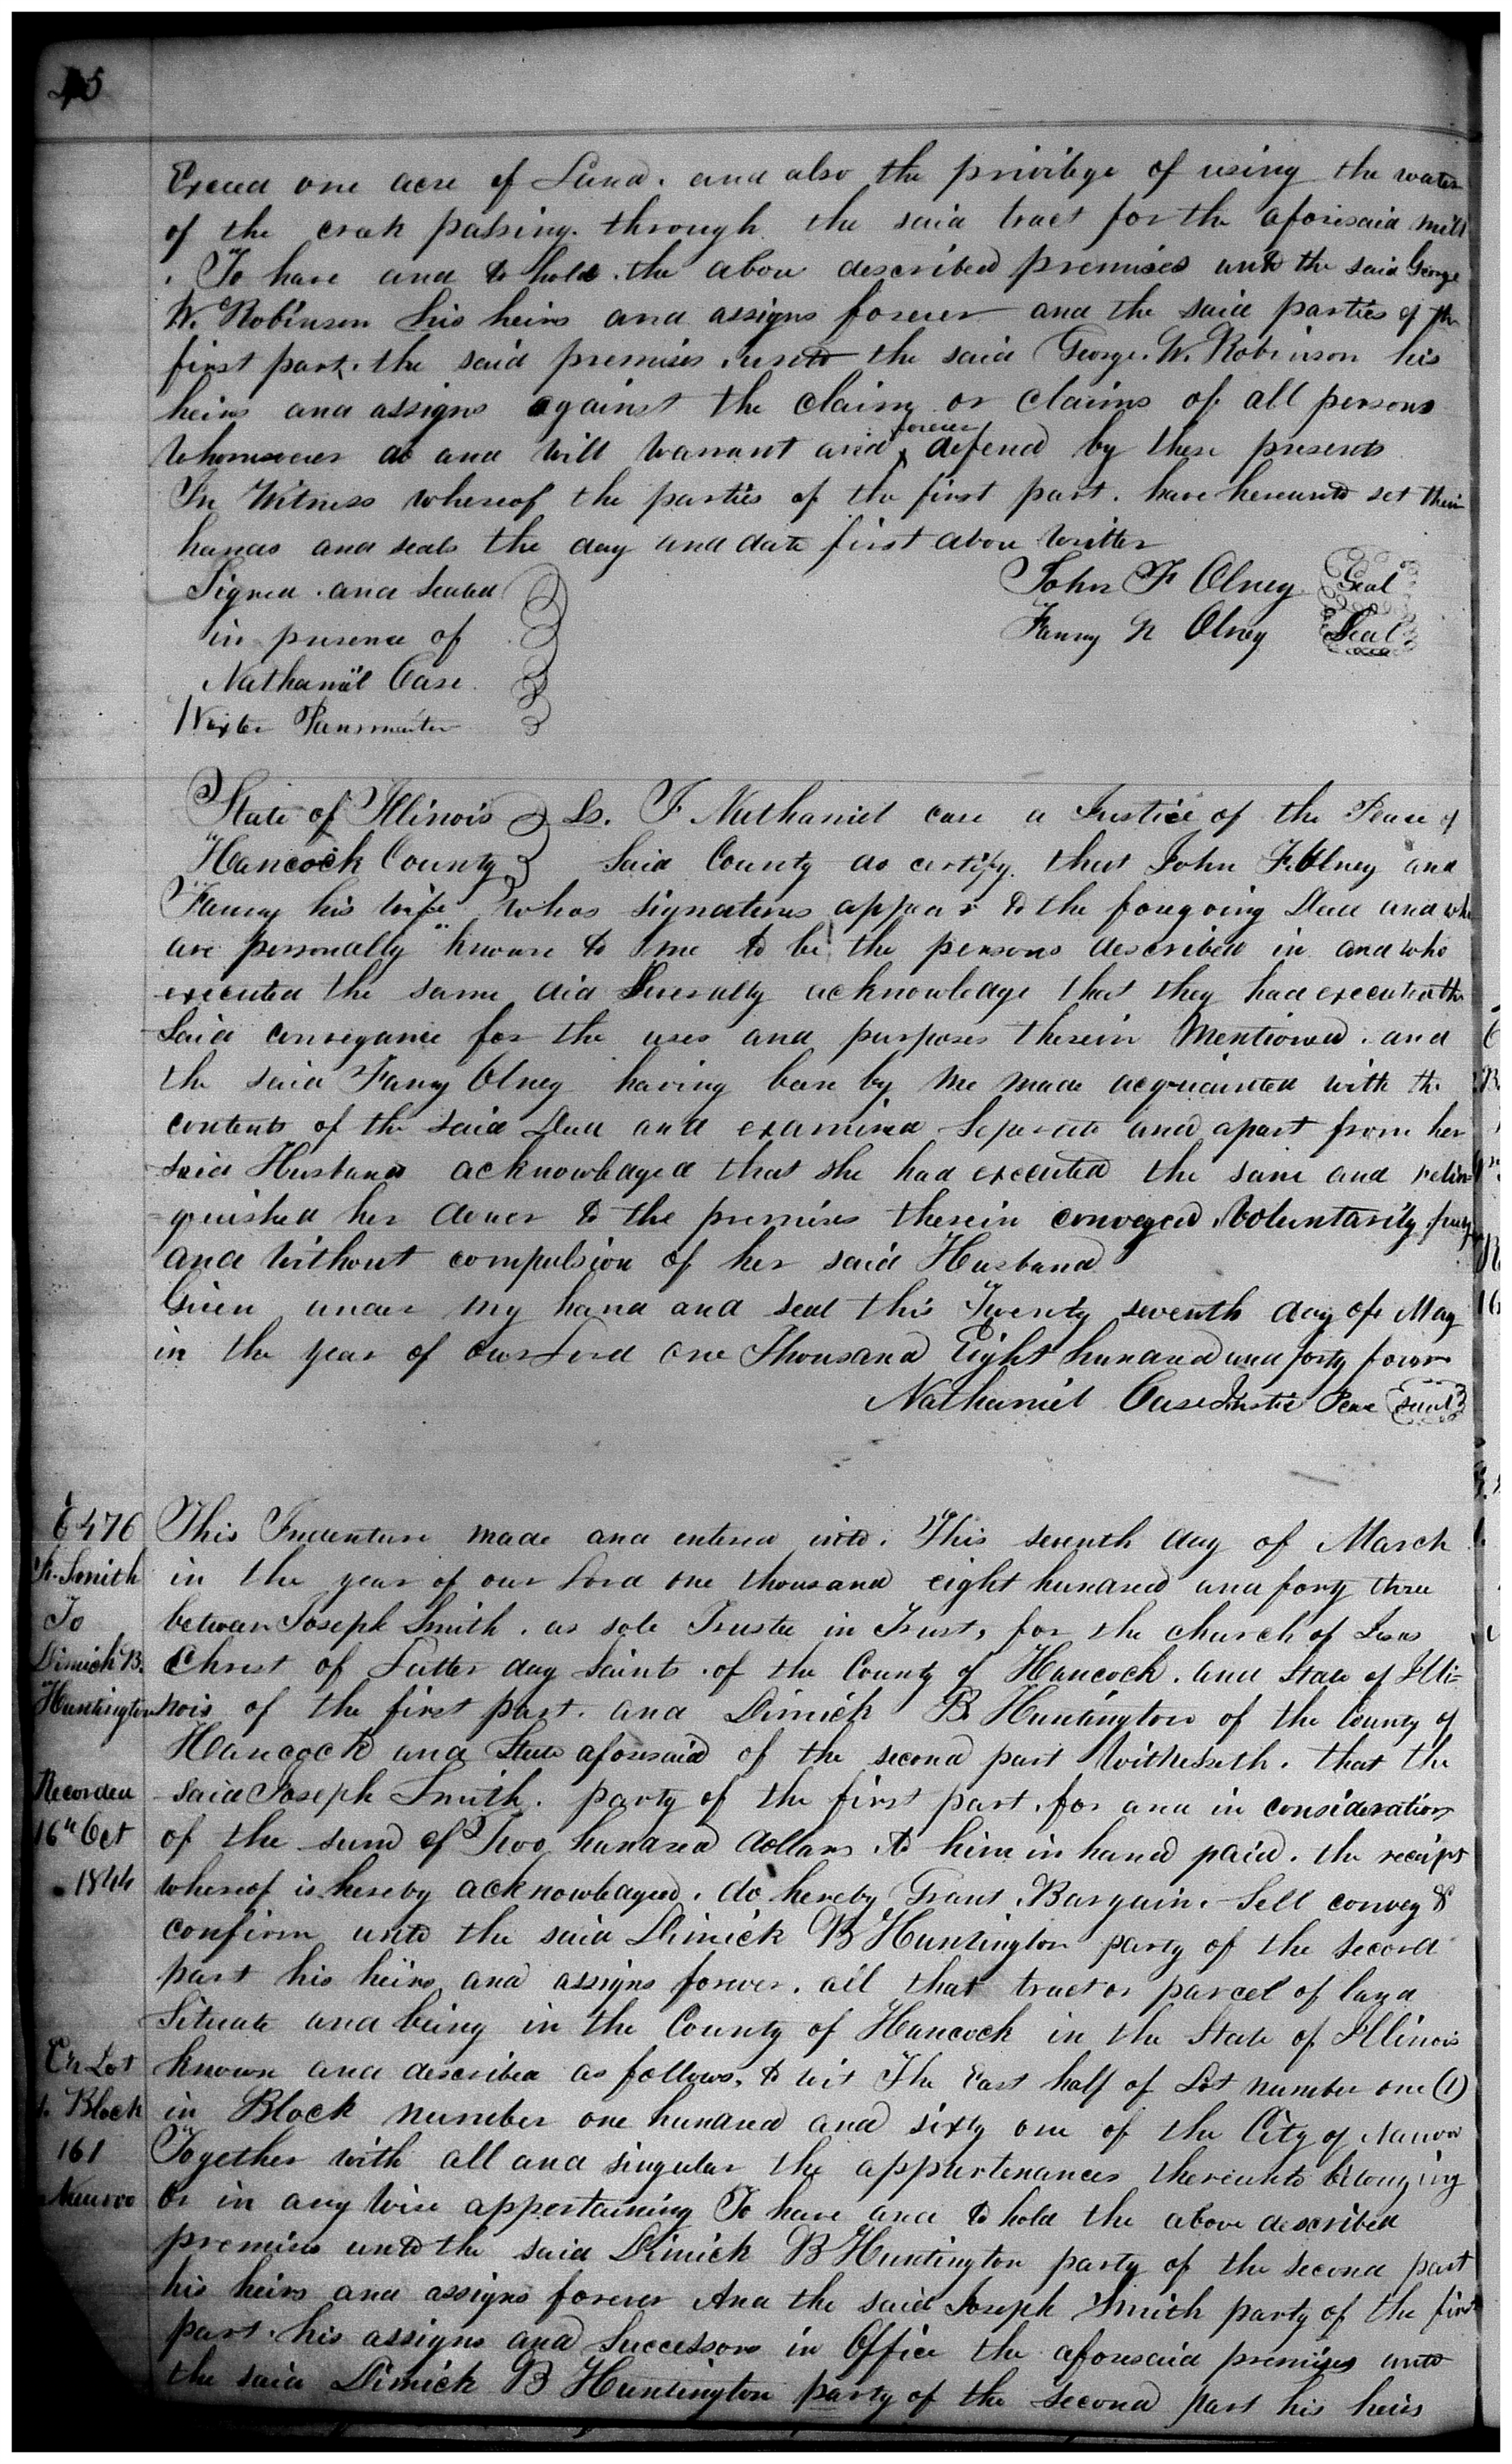 45
Exceed one acre of Land. and also the privilege of using the water
of the creek passing. through the said tract for the aforesaid mill
. To have and to hold. the above described premises unto the said George
W. Robinson his heirs and assigns forever and the said parties of the
first part. the said premises. unto the said George. W. Robinson his
heirs and assigns against the claim or claims of all persons
whomsoever do and will warrant and forever defend by these presents
In Witness whereof the parties of the first part. have hereunto set their
hands and seals the day and date first above written
Signed. and sealed John F Olney Seal
in presence of Fanny N Olney Seal
Nathaniel Case
State of Illinois Ss. I Nathaniel case a Justice of the Peace of
Hancock County Said County do certify. that John F. Olney and
Fanny his wife whos signatures appear to the foregoing Deed and who
are personally known to me to be the persons described in and who
executed the same did severally acknowledge that they had executed the
Said conveyance for the uses and purposes therein Mentioned. and
the said Fanny Olney having been by me made acquainted with the
contents of the said Deed and examined Seperate and apart from her
said Husband acknowledged that she had executed the same and relin=
quished her dower to the premises therein conveyed. Voluntarily. freely
and without compulsion of her said Husband
Given under my hand and seal this Twenty seventh day of May
in the year of our Lord One Thousand Eight hundred and forty four
Nathaniel Case Justice Peace Seal
6476 This Indenture made and entered into. This seventh day of March
Smith in the year of our Lord one thousand eight hundred and forty three
To between Joseph Smith. as sole Trustee in Trust, for the church of Jesus
Dimick B. Christ of Latter day Saints. of the County of Hancock. and State of Illi=
Huntington nois of the first part. and Dimick B. Huntington of the County of
Hancock and State aforesaid of the second part Witnesseth. that the
Recorded said Joseph Smith. party of the first part, for and in consideration
16th Oct of the sum of Two hundred dollars to him in hand paid. the receipt
1844 whereof is hereby acknowledged. do hereby Grant. Bargain. Sell convey &
confirm unto the said Dimick B Huntington party of the second
part his heirs and assigns forever. all that tract or parcel of land
Situate and being in the County of Hancock in the State of Illinois
Lot known and described as follows. to wit The East half of Lot number one (1)
1. Block in Block number one hundred and sixty one of the City of Nauvoo
161 Together with all and singular the appurtenances thereunto belonging
Nauvoo or in any wise appertaining To have and to hold the above described
premises unto the said Dimick B Huntington party of the second part
his heirs and assigns forever And the said Joseph Smith party of the first
part. his assigns and Successors in Office the aforesaid premises unto
the said Dimick B Huntington party of the second part his heirs